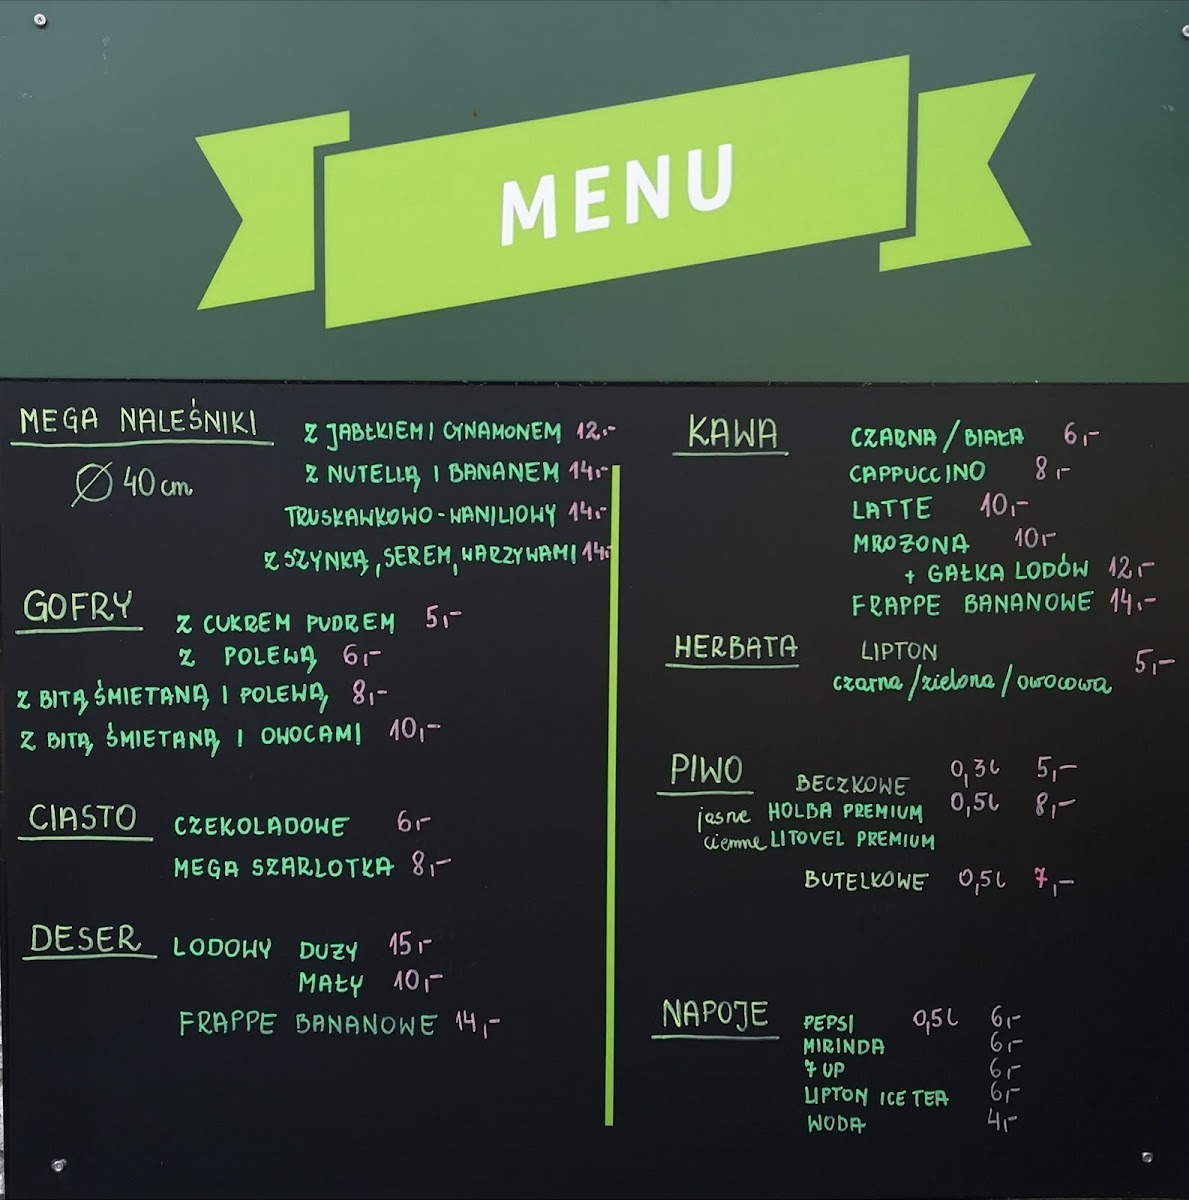 MENU
MEGA NALEŚNIKI
Ø 40 cm
Z JABŁKIEM I CYNAMONEM 12,-
Z NUTELLĄ I BANANEM 14,-
TRUSKAWKOWO-WANILIOWY 14,-
Z SZYNKĄ, SEREM, WARZYWAMI 14,-
GOFRY
Z CUKREM PUDREM 5,-
Z POLEWĄ 6,-
Z BITĄ ŚMIETANĄ I POLEWĄ 8,-
Z BITĄ ŚMIETANĄ I OWOCAMI 10,-
CIASTO
CZEKOLADOWE 6,-
MEGA SZARLOTKA 8,-
DESER
LODOWY DUŻY 15,-
MAŁY 10,-
FRAPPE BANANOWE 14,-
KAWA
CZARNA / BIAŁA 6,-
CAPPUCCINO 8,-
LATTE 10,-
MROŻONA 10,-
+ GAŁKA LODÓW 12,-
FRAPPE BANANOWE 14,-
HERBATA
LIPTON
czarna / zielona / owocowa 5,-
PIWO
BECZKOWE 0,3l 5,-
jasne HOLBA PREMIUM 0,5l 8,-
ciemne LITOVEL PREMIUM
BUTELKOWE 0,5l 7,-
NAPOJE
PEPSI 0,5l 6,-
MIRINDA 6,-
7 UP 6,-
LIPTON ICE TEA 6,-
WODA 4,-